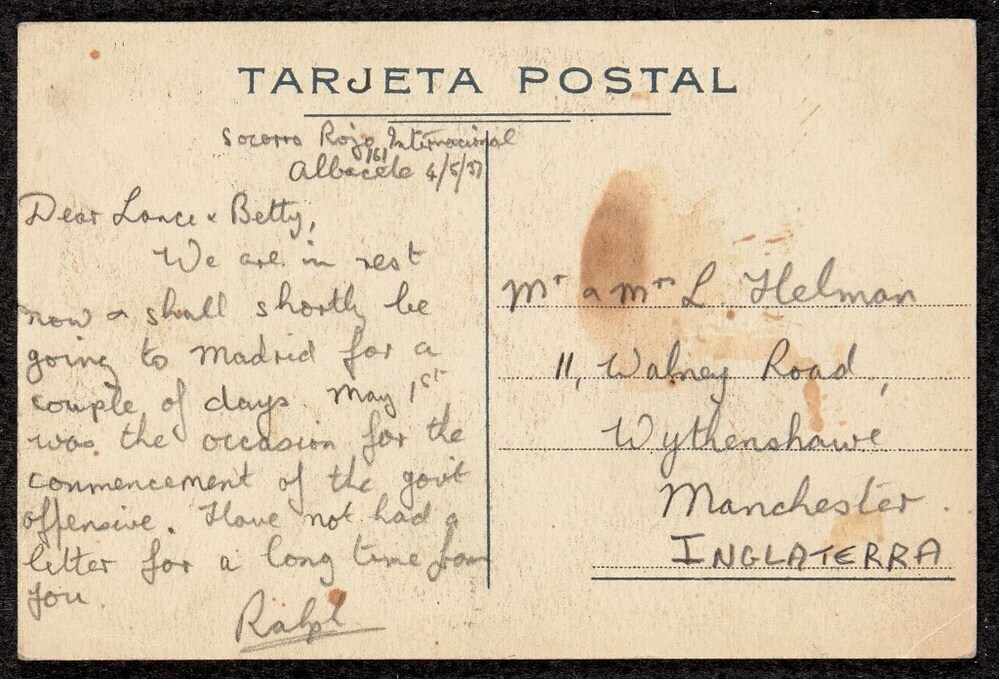 TARJETA POSTAL
Socorro Rojo Internacional
161
Albacete 4/5/37
Dear Lance & Betty,
We are in rest
now & shall shortly be
going to Madrid for a
couple of days. May 1st
was the occasion for the
commencement of the gov't
offensive. Have not had a
letter for a long time from
you.
Ralph
Mr & Mrs L. Helman
11, Walney Road,
Wythenshawe
Manchester.
INGLATERRA